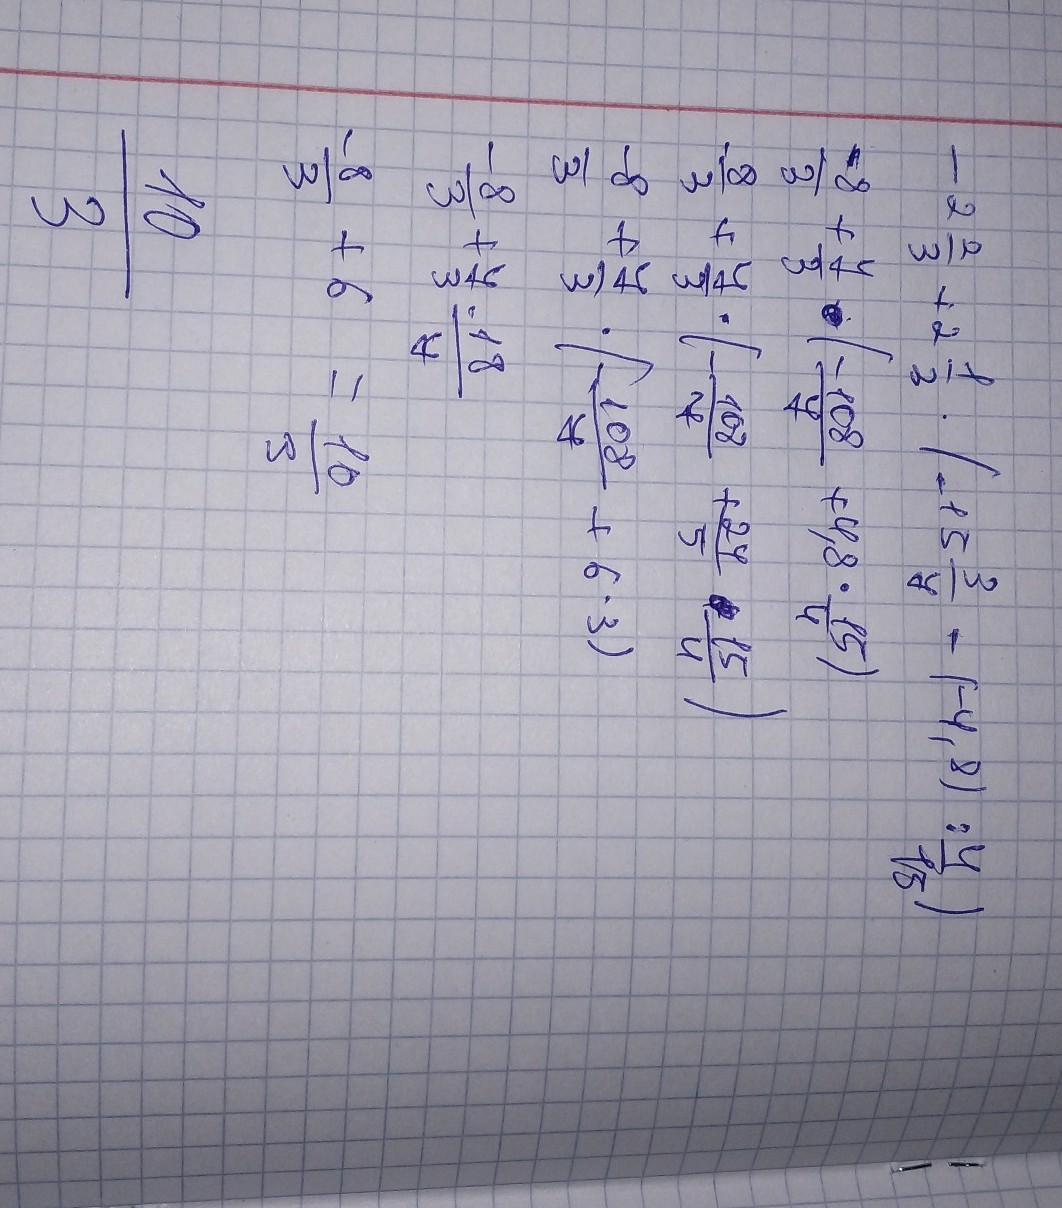 -2 2/3 + 2 1/3 · (-15 3/7 - (-4,8) : 4/15)
-8/3 + 7/3 · (-108/7 + 4,8 · 15/4)
-8/3 + 7/3 · (-108/7 + 24/5 · 15/4)
-8/3 + 7/3 · (-108/7 + 6·3)
-8/3 + 7/3 · 18/7
-8/3 + 6 = 10/3
10/3